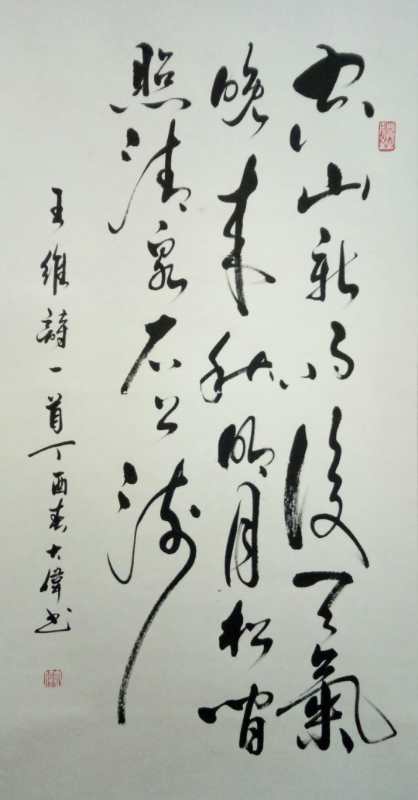 空山新雨後天氣
晚来秋明月松間
照清泉石上流
王維詩一首丁酉春大偉书